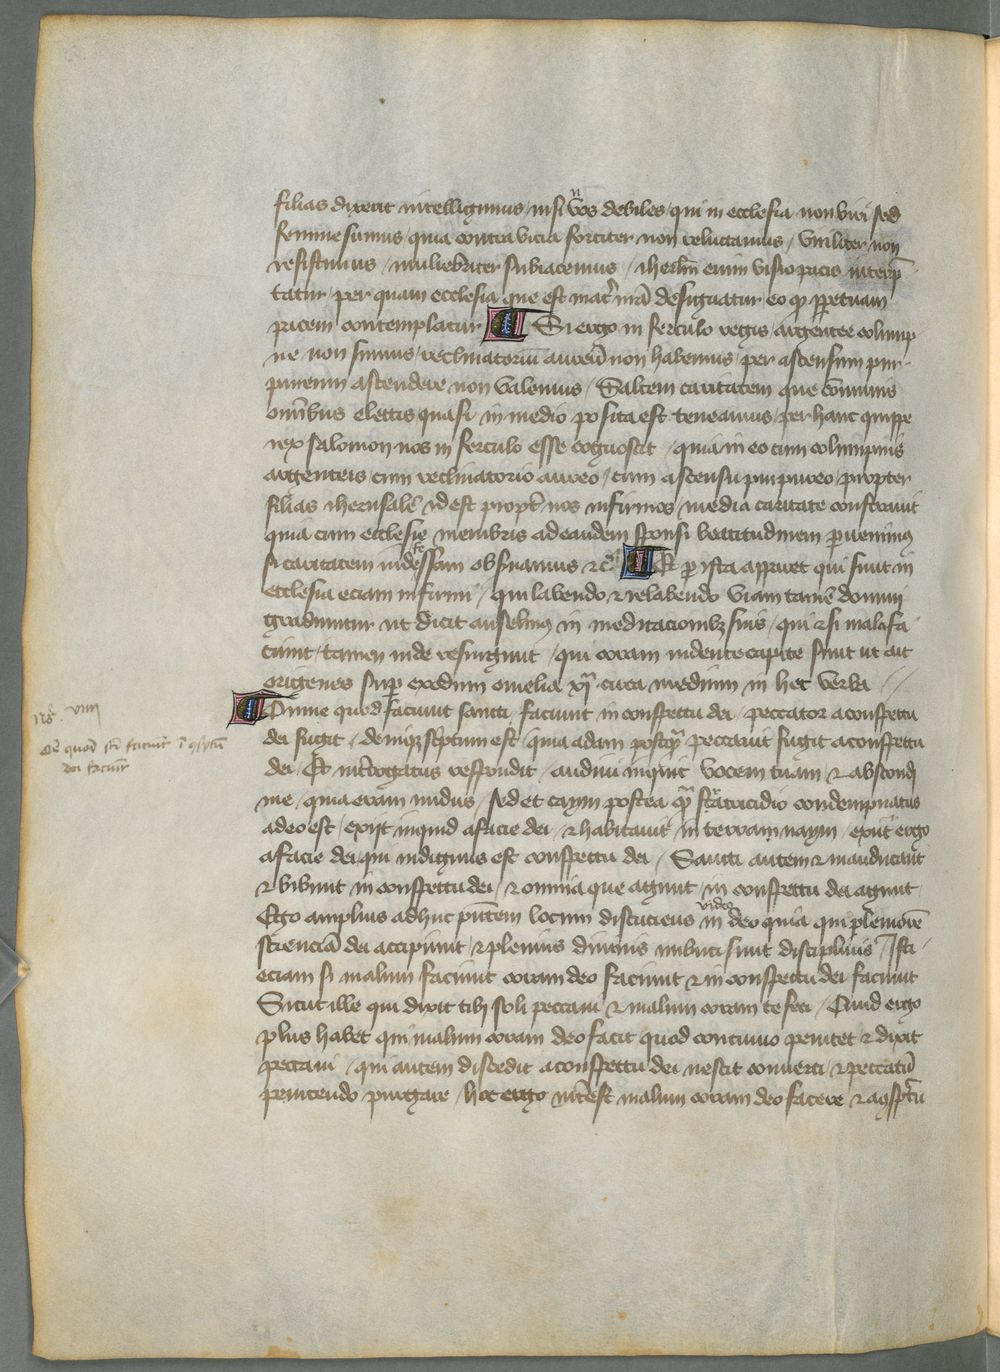 filias dixerit intelligimus / nisi nos debiles / qui in ecclesia non viri sed
femine sumus / quia contra vicia fortiter non reluctamus / viriliter non
resistimus / muliebriter subiacemus / iherlm̄ enim visio pacis interp̄-
tatur / per quam ecclesia que est mat̾ nr̄a designatur eo qɔ ꝑpetuam
pacem contemplatur ¶ Si ergo in ferculo regis argentee colump
ne non sumus / reclinatoriū aureū non habemus / per ascensum pur-
pureum ascendere non valemus / Saltem caritatem que cōmunis
omībus electis quasi in medio posita est teneamus / per hanc quippe
rex salomon nos in ferculo esse cognoscit / quia in eo cum columpnis
argenteis / cum reclinatorio aureo / cum ascensu purpureo / propter
filias iherusalē id est propt̾ nos infirmos / media caritate constravit
quia cum ecclesie membris ad eandem sponsi beatitudinem ꝑuenimꝰ
si caritatem indefesse obs̾uamus ⁊c̄ ¶ Et ꝑ ista apparet qui sunt in
ecclesia eciam infirmi / qui labendo ⁊ relabendo viam tamē domini
gradiuntur ut dicit anselmꝰ in meditacionibꝫ suis / qui ⁊ si mala fa-
ciunt / tamen inde resurgunt / qui coram uidente capite sunt ut ait
origenes sup̱ exodum omelia xjª circa medium in hec verba //
¶ Omne quod faciunt sancti / faciunt in conspectu dei / peccator a conspectu
dei fugit / deniqꝫ sc̾ptum est / quia adam postqᷓ peccauit fugit a conspectu
dei / Et int̾rogatus respondit / audiui inquit vocem tuam / ⁊ abscondi
me / quia eram nudus / sed et caym postea qᷓ fratricidio condempnatus
a deo est / exijt inquid a facie dei / ⁊ habitauit in terram naym / exiit ergo
a facie dei qui indignus est conspectu dei / Sancti autem ⁊ manducant
⁊ bibunt in conspectu dei / ⁊ omnia que agunt / in conspectu dei agunt
Ego amplius adhuc pn̄tem locum discutiens video in deo quia qui pleniorē
scienciā dei accipiunt / ⁊ plenius diuinis imbuti sunt disciplinis / Isti
eciam si malum faciunt coram deo faciunt ⁊ in conspectu dei faciunt
Sicut ille qui dixit tibi soli peccaui ⁊ malum coram te feci / Quid ergo
plus habet qui malum coram deo facit quod continuo penitet ⁊ dixit
peccaui / qui autem discedit a conspectu dei nescit conuerti / ⁊ peccatū
penitendo purgare / hoc ergo int̾est malum coram deo facere ⁊ a cōspc̄tu
Oē quod sc̄i faciūt ī ꝯspc̄tu
dei faciūt